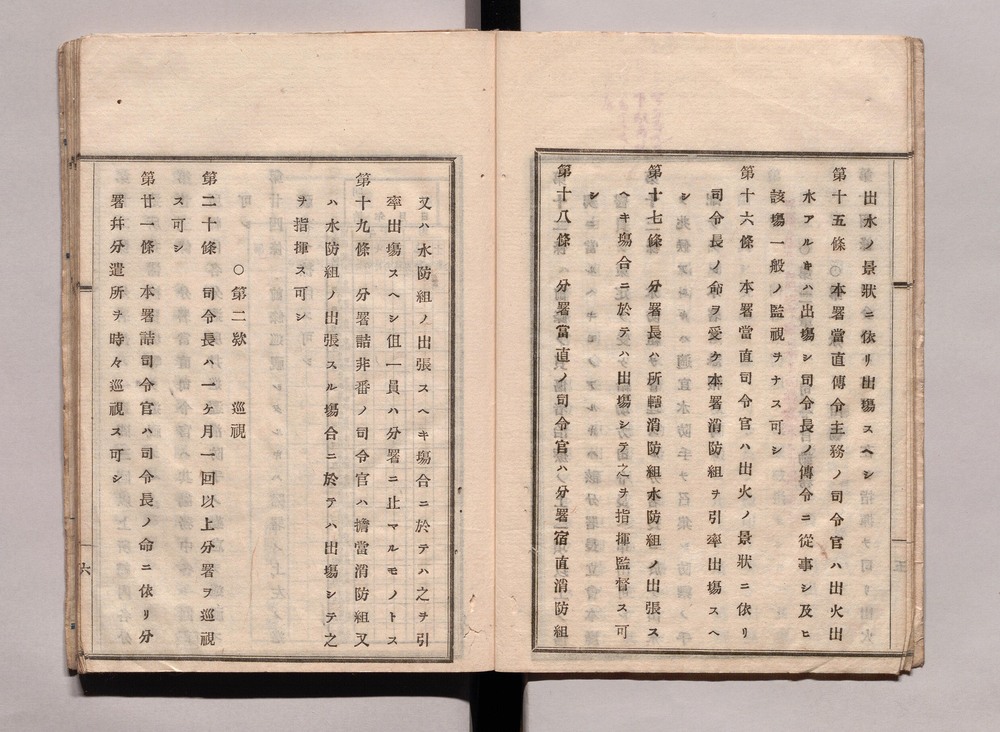 出水ノ景狀ニ依リ出塲スヘシ
第十五條　○本署當直傳令主務ノ司令官ハ出火出
水アルキハ出塲シ司令長ノ傳令ニ從事シ及ヒ
該塲一般ノ監視ヲナス可シ
第十六條　本署當直司令官ハ出火ノ景狀ニ依リ
司令長ノ命ヲ受ケ本署消防組ヲ引率出塲スヘ
シ
第十七條　分署長ハ所轄消防組水防組ノ出張ス
ヘキ塲合ニ於テハ出塲シテ之ヲ指揮監督ス可
シ
第十八條　分署當直ノ司令官ハ分署宿直消防組
又ハ水防組ノ出張スヘキ塲合ニ於テハ之ヲ引
率出塲スヘシ但一員ハ分署ニ止マルモノトス
第十九條　分署詰非番ノ司令官ハ擔當消防組又
ハ水防組ノ出張スル塲合ニ於テハ出塲シテ之
ヲ指揮ス可シ
○第二欵　巡視
第二十條　司令長ハ一ヶ月一回以上分署ヲ巡視
ス可シ
第廿一條　本署詰司令官ハ司令長ノ命ニ依リ分
署幷分遣所ヲ時々巡視ス可シ
六